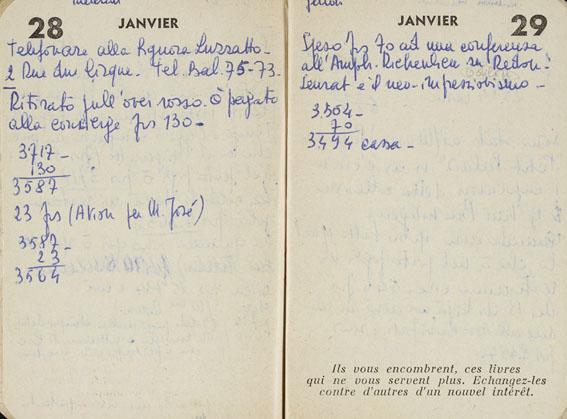 28 JANVIER
Telefonare alla signora Luzzatto -
2 Rue du Cirque. Tel. Bal. 75-73.
Ritirato pull'over rosso. è pagato
alla concierge frs 130 -
3717 -
130
3587
23 frs (Avion per M. José)
3587 -
23
3564
JANVIER 29
Speso frs 70 ad una conferenza
all'Amph. Richelieu su Redon:
Seurat e il neo-impressionismo -
3564 -
70
3494 cassa -
Ils vous encombrent, ces livres
qui ne vous servent plus. Echangez-les
contre d'autres d'un nouvel intérêt.